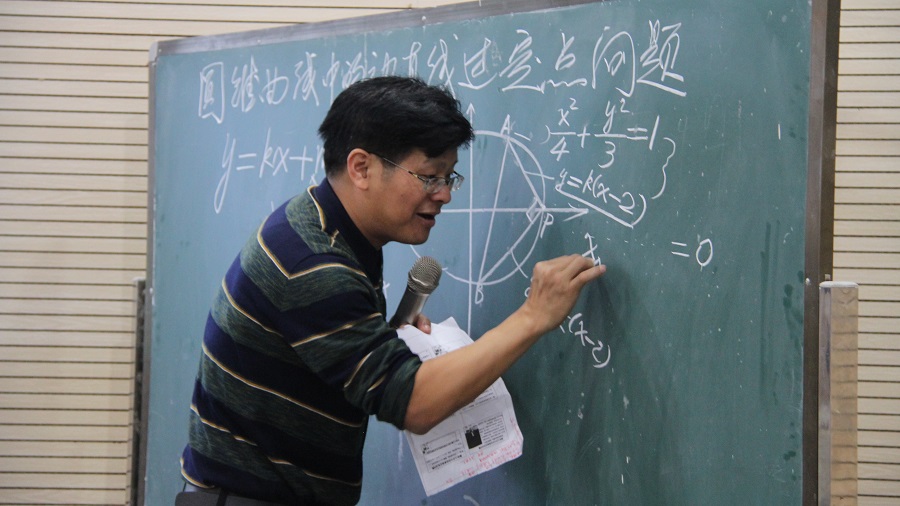 圆锥曲线中的动直线过定点问题
y=kx+
x²/4 + y²/3 = 1
y=k(x-2)
A
P
B
=0
(x-2)